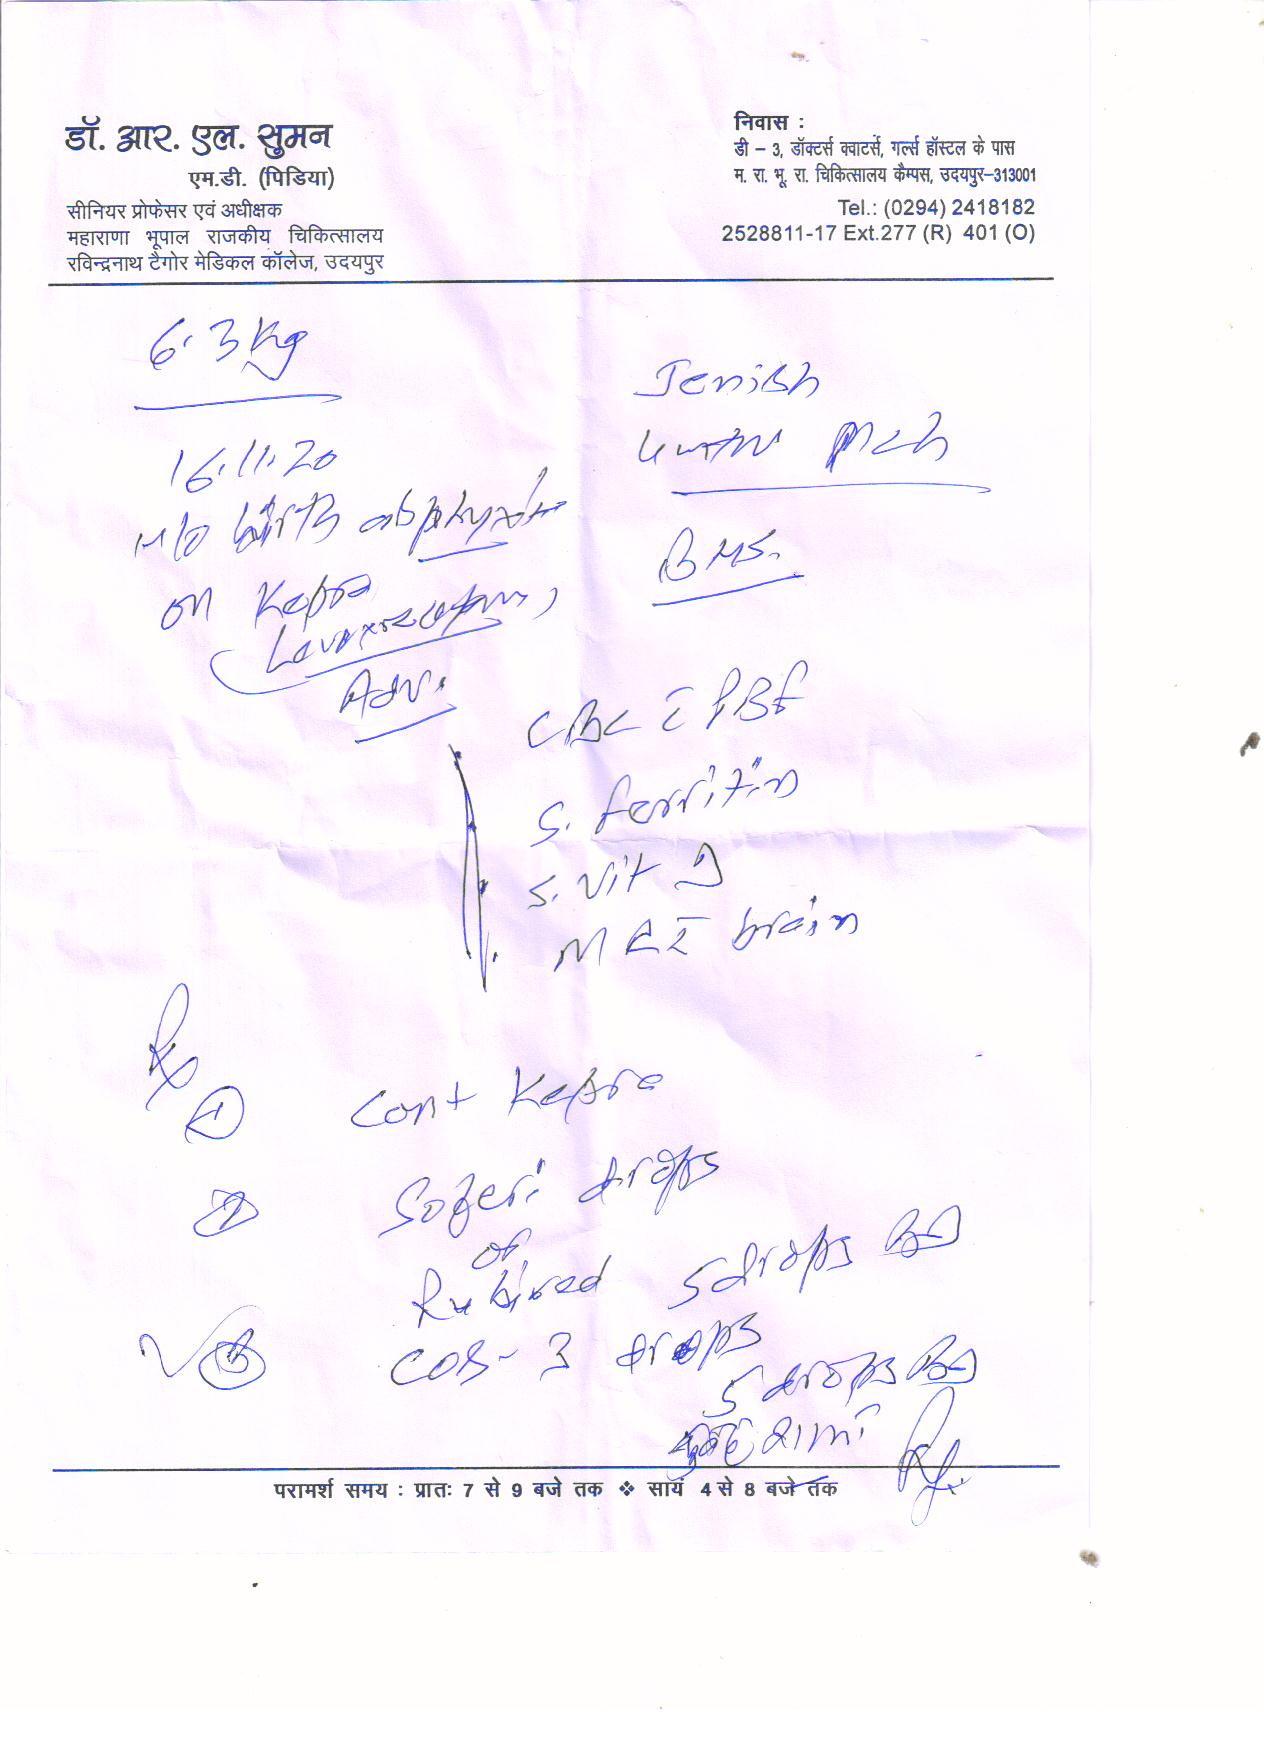 डॉ. आर. एल. सुमन
एम.डी. (पिडिया)
सीनियर प्रोफेसर एवं अधीक्षक
महाराणा भूपाल राजकीय चिकित्सालय
रविन्द्रनाथ टैगोर मेडिकल कॉलेज, उदयपुर
निवास :
डी – 3, डॉक्टर्स क्वाटर्स, गर्ल्स हॉस्टल के पास
म. रा. भू. रा. चिकित्सालय कैम्पस, उदयपुर–313001
Tel.: (0294) 2418182
2528811-17 Ext.277 (R) 401 (O)
6.3 Kg
Jenish
16.11.20
H/o birth
on Kepra
Adv.
CBC c PBF
S. ferritin
S. Vit D
MRI brain
Rx
1 Cont Kepra
2 drops
or
5 drops BD
3 drops
5 drops BD
सुबह शाम
परामर्श समय : प्रातः 7 से 9 बजे तक ❖ सायं 4 से 8 बजे तक